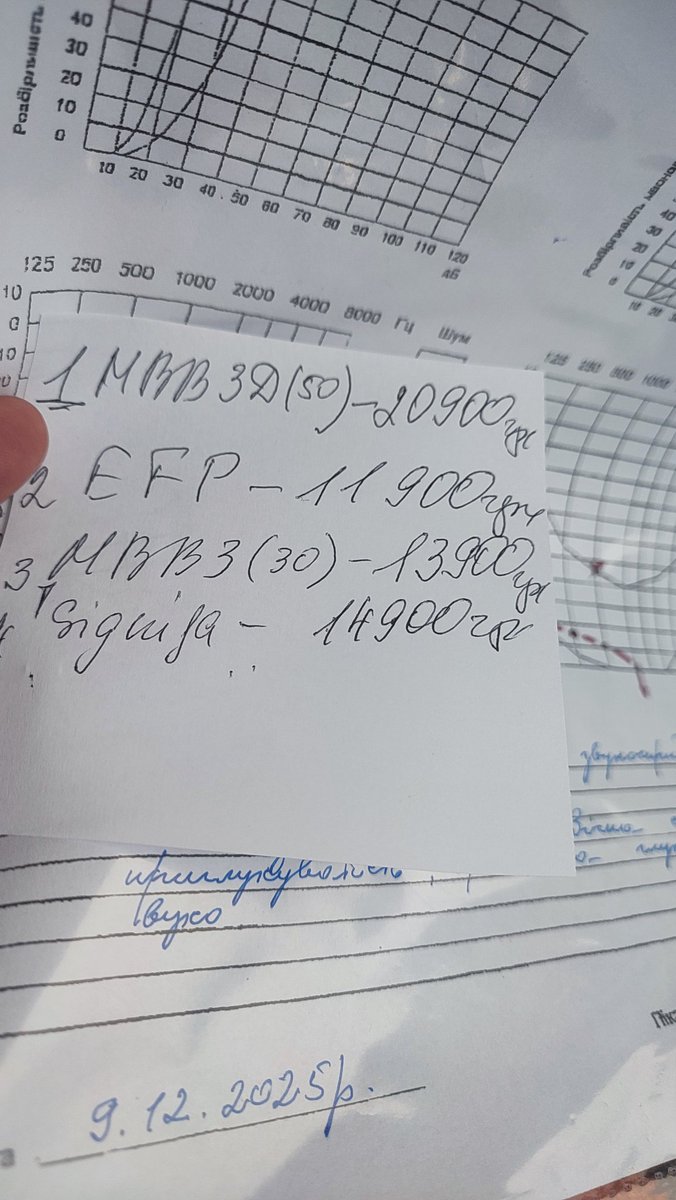 Розбірливість
40
30
20
10
0
10 20 30 40 50 60 70 80 90 100 110 120
дБ
Розбірливість
40
30
20
10
0
10 20
125 250 500 1000 2000 4000 8000 Гц Шум
10
0
10
20
125 250 500 1000
1 MBB3D(50) – 20900 грн
2 EFP – 11900 грн
3 MBB3(30) – 13900 грн
Signifa – 14900 грн
приглухуватість
вухо
9.12.2025р.